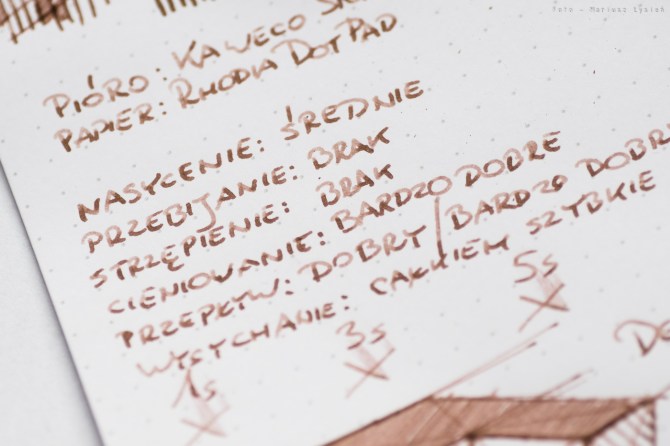 Foto - Mariusz Łysiak
PIÓRO: KAWECO
PAPIER: RHODIA DOTPAD
NASYCENIE: ŚREDNIE
PRZEBIJANIE: BRAK
STRZĘPIENIE: BRAK
CIENIOWANIE: BARDZO DOBRE
PRZEPŁYW: DOBRY/BARDZO DOBR
WYSYCHANIE: CAŁKIEM SZYBKIE
1s 3s 5s